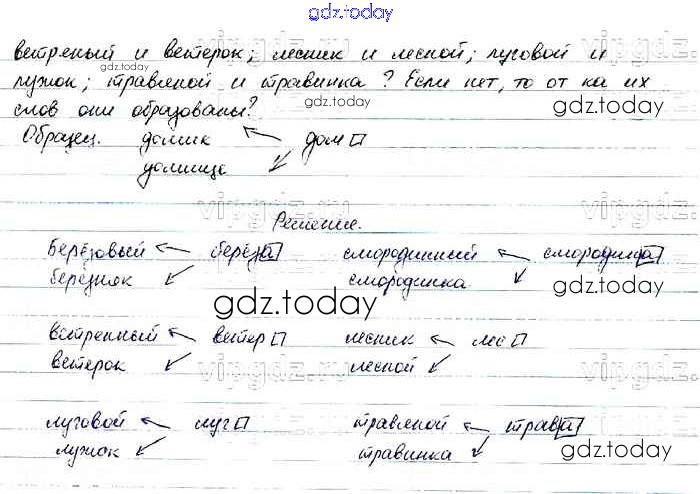 gdz.today
ветреный и ветерок; лесник и лесной; луговой и
лужок; травяной и травинка? Если нет, то от ка их
слов они образованы?
gdz.today
gdz.today
Образец. домик ← дом
домище
Решение.
берёзовый ← берёза смородинный ← смородина
березняк смородинка
gdz.today
gdz.today
ветренный ← ветер лесник ← лес
ветерок лесной
gdz.today
луговой ← луг травяной ← трава
лужок травинка
gdz.today